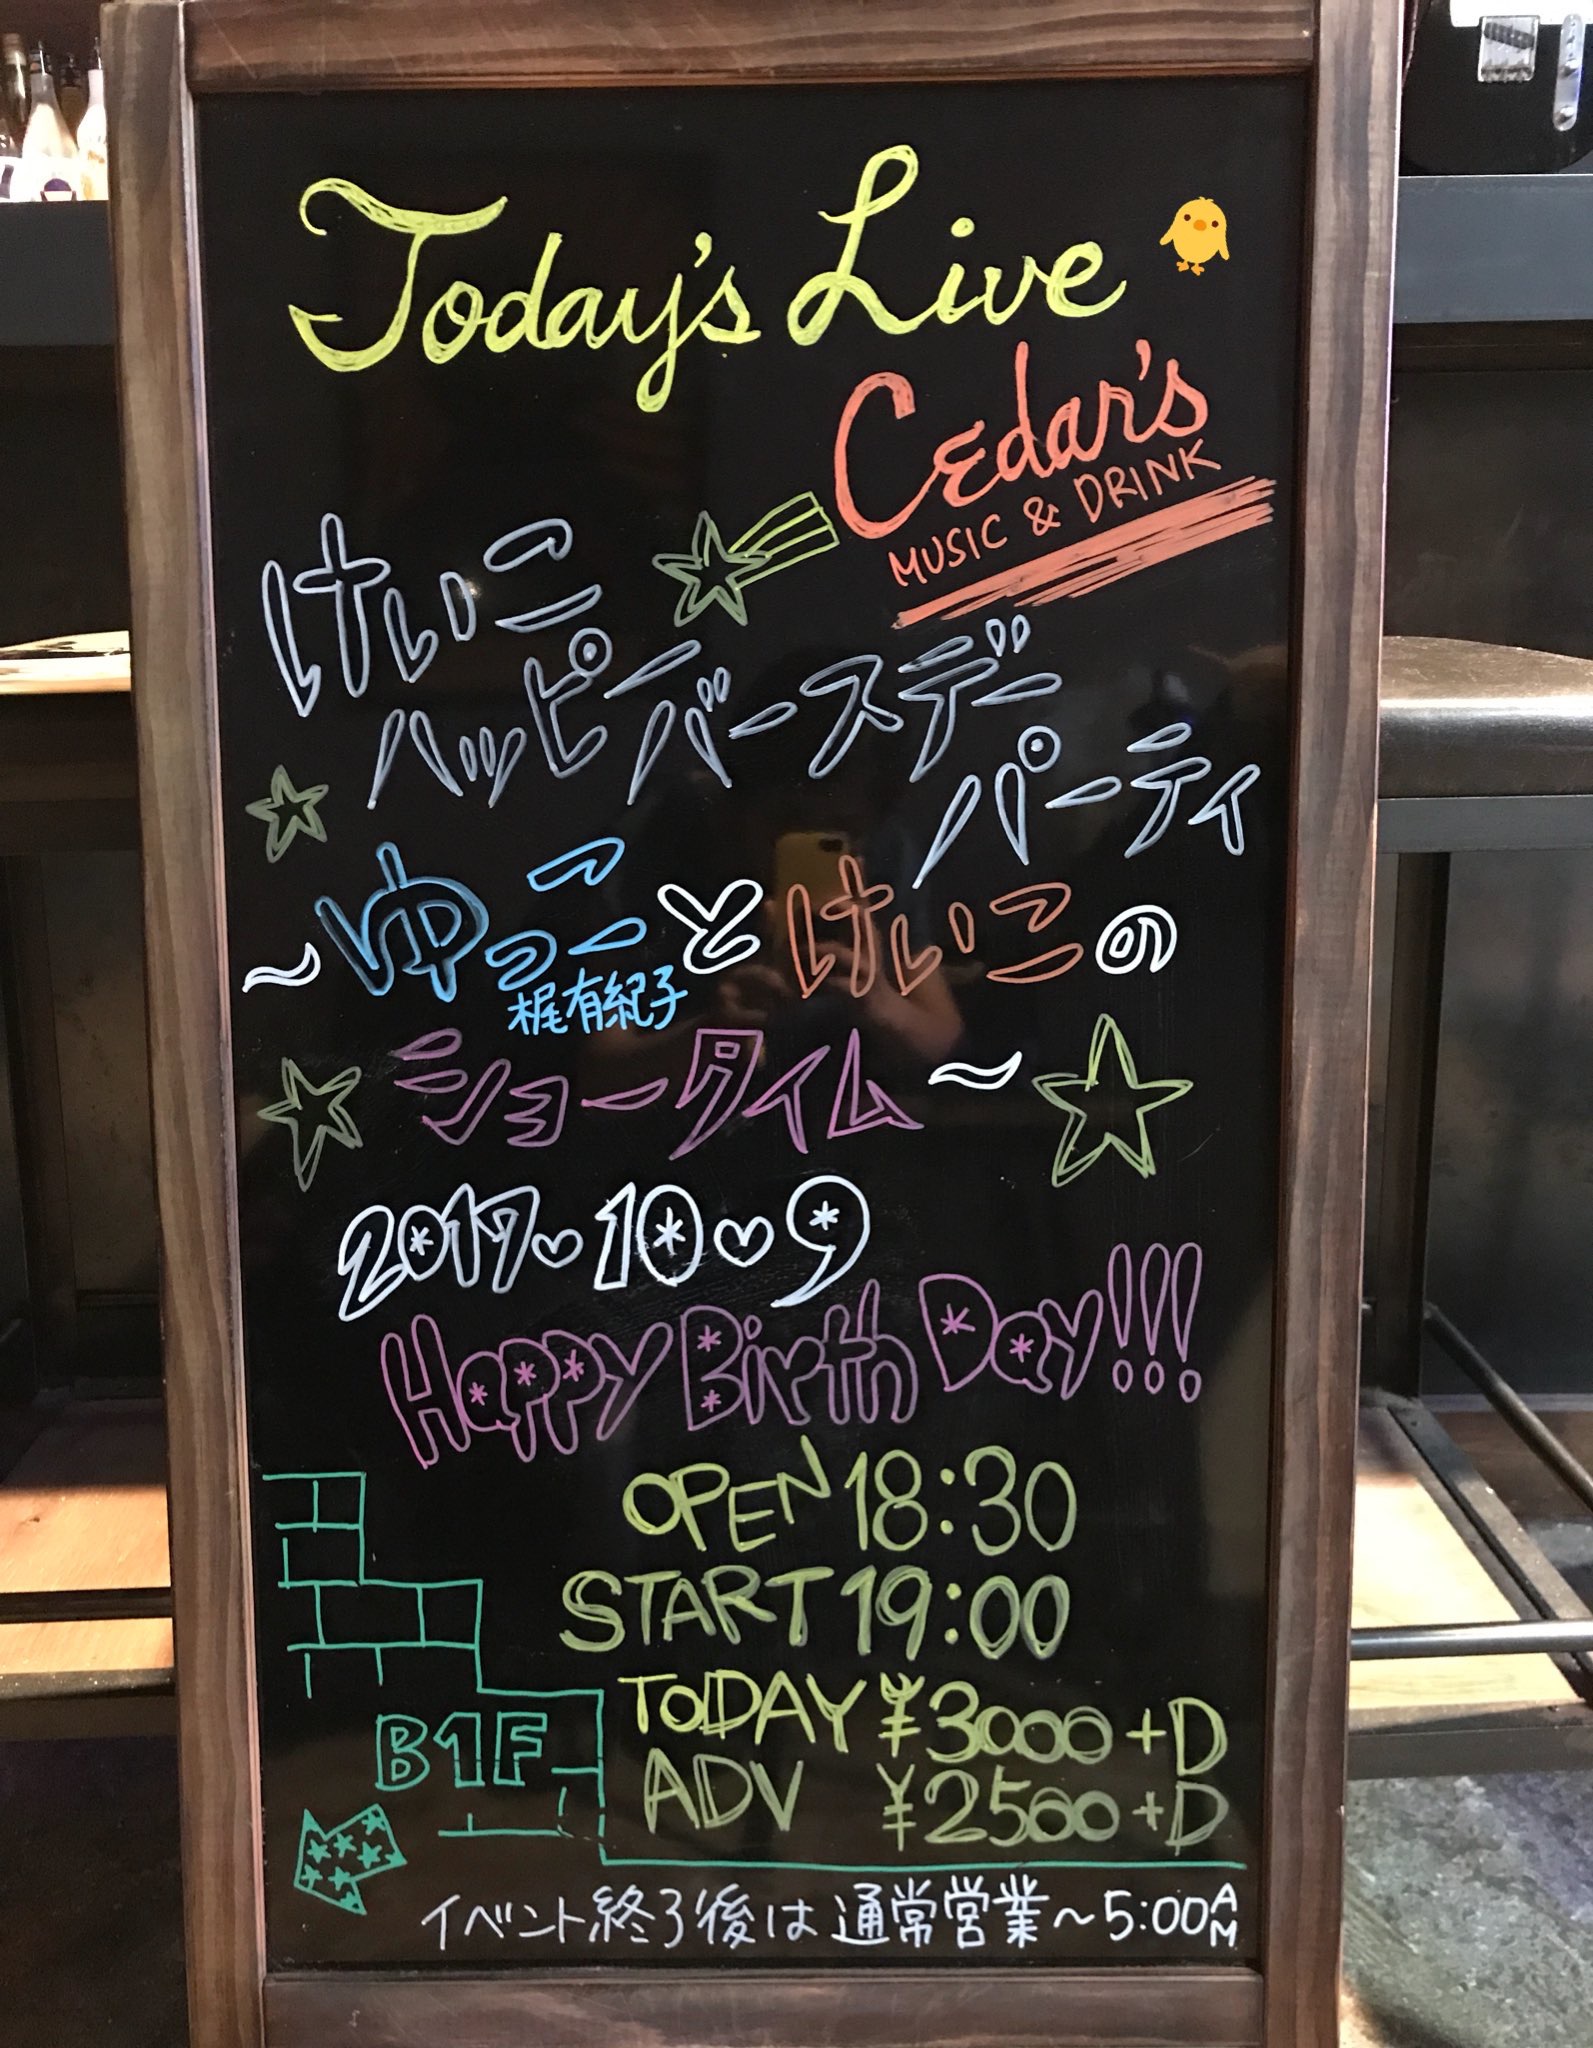 Today's Live
Cedar's
MUSIC & DRINK
けいこ
ハッピーバースデー
パーティ
～ゆっこーとけいこの
梶有紀子
ショータイム～
2017♡10♡9
Happy BirthDay!!!
OPEN 18:30
START 19:00
TODAY ¥3000+D
ADV ¥2500+D
B1F
イベント終了後は通常営業～5:00AM